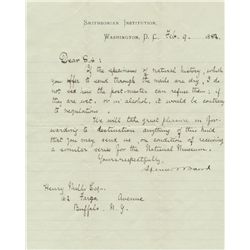 SMITHSONIAN INSTITUTION,
WASHINGTON, D. C. Feb. 9. 1882.
Dear Sir:
If the specimens of natural history, which
you offer to send through the mails are dry, I do
not see how the post-master can refuse them: if
they are wet, or in alcohol, it would be contrary
to regulations.
We will take great pleasure in for-
warding to destination anything of this kind
that you may send us, on condition of receiving
a similar series for the National Museum.
Yours respectfully,
Spencer F Baird
Henry Phill Esq.
162 Fargo Avenue
Buffalo, N. Y.